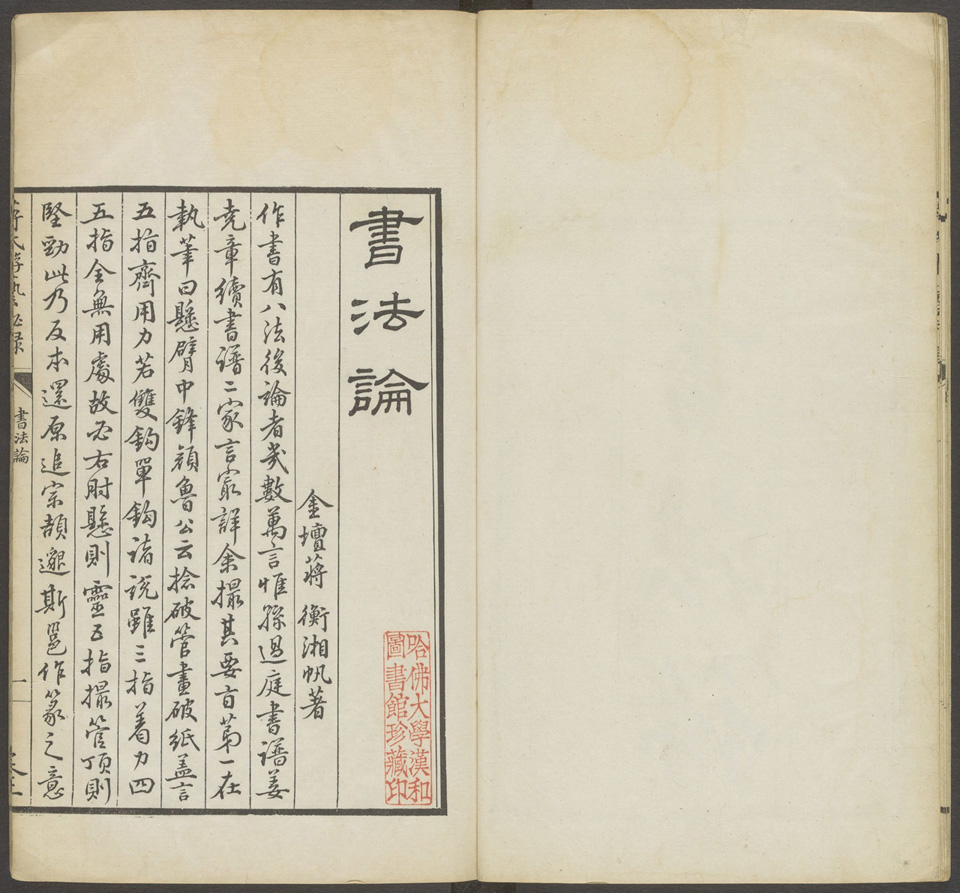 書法論
金壇蔣衡湘帆著
作書有八法後論者幾數萬言惟孫過庭書譜姜
堯章續書譜二家言最詳余撮其要旨苐一在
執筆曰懸臂中鋒顔魯公云捻破管畫破紙葢言
五指齊用力若雙鈎單鈎諸說雖三指着力四
五指全無用處故必右肘懸則靈五指撮管頂則
堅勁此乃反本還原追宗頡邈斯邕作篆之意
蔣氏游藝秘録
書法論
一
哈佛大學漢和
圖書館珍藏印